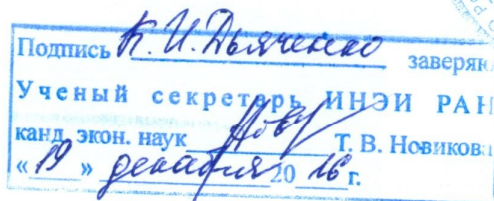 Подпись К. И. Дьяченко заверяю
Ученый секретарь ИНЭИ РАН
канд. экон. наук Т. В. Новикова
«19» декабря 2016 г.